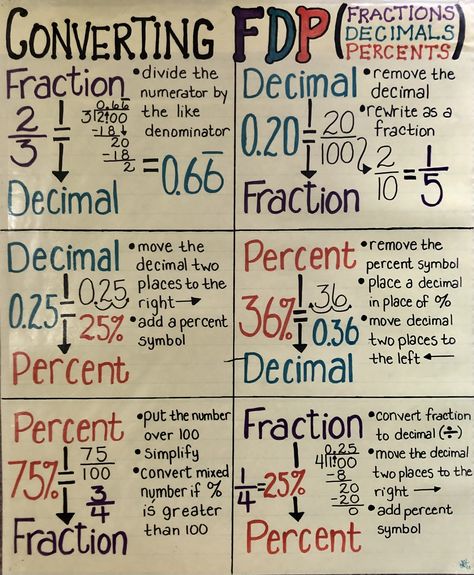 CONVERTING FDP (FRACTIONS
DECIMALS
PERCENTS)
Fraction
2/3 =
0.66
3)2.00
-18
20
-18
2
= 0.66̅
Decimal
•divide the
numerator by
the like
denominator
Decimal
0.20 = 20/100
2/10 = 1/5
Fraction
•remove the
decimal
•rewrite as a
fraction
Decimal
0.25 = 0.25
25%
Percent
•move the
decimal two
places to the
right →
•add a percent
symbol
Percent
36% = .36
0.36
Decimal
•remove the
percent symbol
•place a decimal
in place of %
•move decimal
two places to
the left ←
Percent
75% = 75/100
3/4
Fraction
•put the number
over 100
•Simplify
•convert mixed
number if %
is greater
than 100
Fraction
1/4 = 25%
0.25
4)1.00
-8
20
-20
0
Percent
•convert fraction
to decimal (÷)
•move the decimal
two places to the
right →
•add percent
symbol